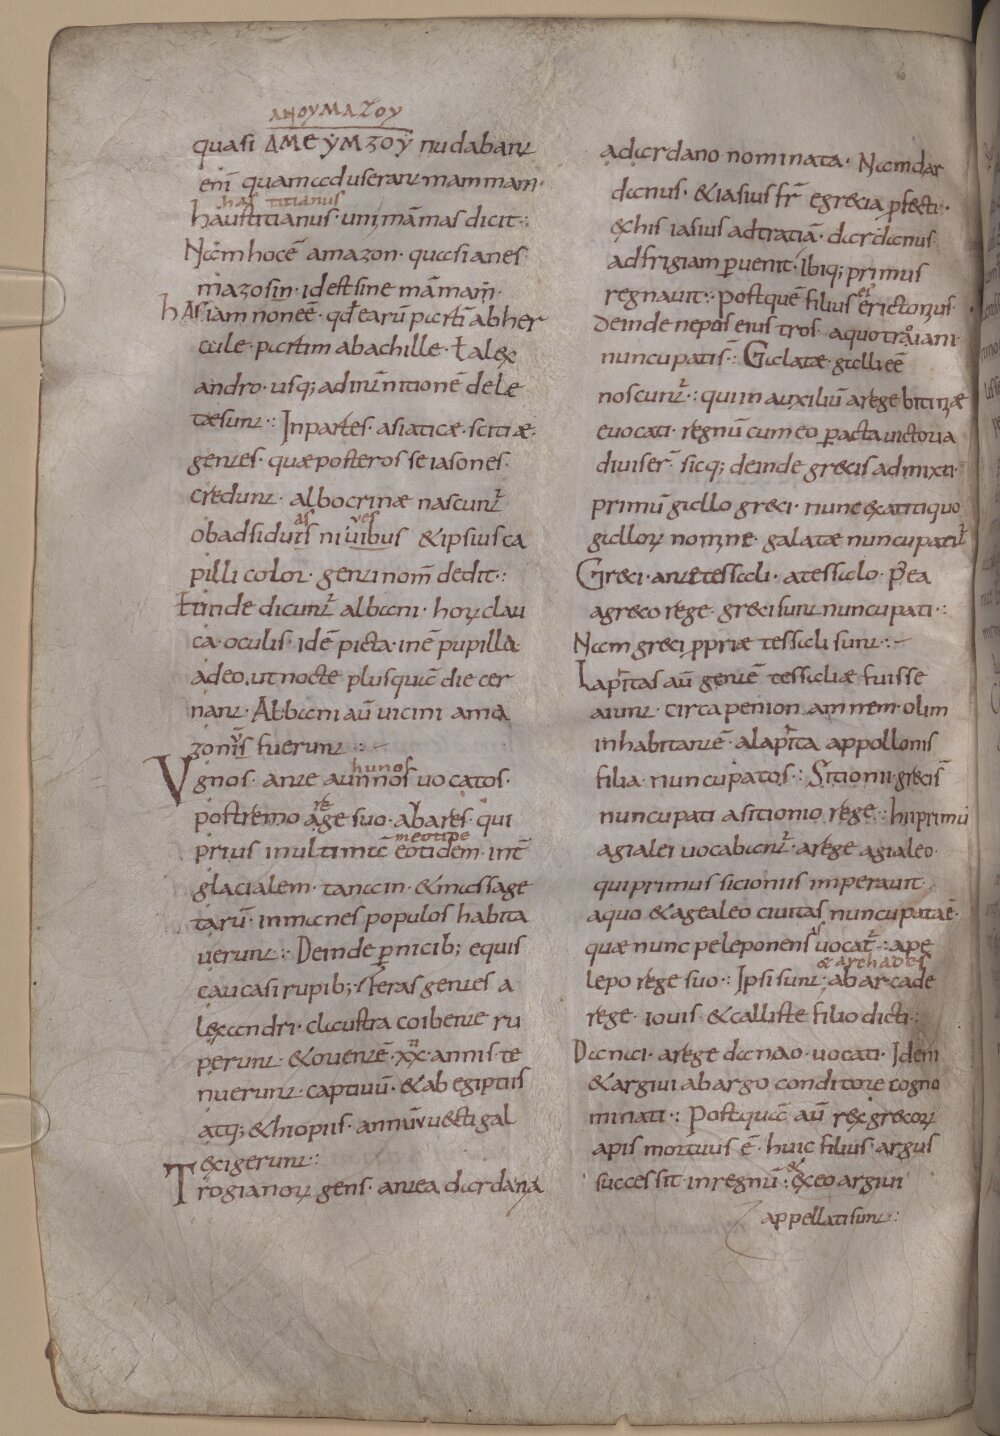 ΑΝΟΥΜΑΖΟΥ
quasi ΑΜΕΥΜΖΟΥ nudabant
enī quam adusserant mammam·
has titianus
haustitianus· unimāmas dicit·:
Nam hoc ē amazon· quasi anes
mazosin· id est sine māmam̄·
has iam non eē· qđ earū partī ab her
cule· partim ab achille· ł alex
andro· usq; ad intnitionē dele
tae sunt·: In partes· asiaticae· scitiae·
gentes· quae posteros se iasones·
credunt· albo crinae nascunt̄
as ves
obadsiduis niuibus & ipsius ca
pilli color· genti nom̄ dedit·:
Et inde dicunt̄ albani· hoꝝ clau
ca· oculis· idē picta· inē pupilla·
adeo, ut nocte plusquā die cer
nant· Albani aū uicini ama
zonis fuerunt·:
hunos
Vgnos· ante aunnos uocatos·
re
postremo age suo· abares· qui
meotide
prius inultimāc eotidem· int̄
glacialem· tanain· & massage
tarū· inmanes populos habita
uerunt·: Deinde pnicib; equis
caucasi rupib; feras gentes a
lexandri· claustra coibente ru
perunt· & ouentē· xx· annis te
nuerunt· captiuū· & ab egiptiis
atq; & hiopiis· annūu uectigal
exigerunt·:
Trogianoꝝ gens· antea dardana
a dardano nominata· Nam dar
danus· & iasius fr̄ e grecia pfecti·:
ex his iasius ad tratiā· dardanus
ad frigiam puenit· Ibiq; primus
regnauit·: Post quē filius erictonius·
Deinde nepos eius tros· a quo troiani·
nuncupati s̄·: Galatae· galli eē
noscunt̄·: qui in auxiliū a rege bitinae
euocati· regnū cum eo pacta uictoria
diuiser̄· sicq; deinde grecis admixti·
primū gallo greci· nunc ex antiquo
galloꝝ nomine· galatae nuncupant̄
Greci· ante tessali· a tessalo· p̄ea
a greco rege· greci sunt nuncupati·:
Nam greci ppriae tessali sunt·:
Lapitas aū gentē tessaliae fuisse
aiunt· circa penion amnem olim
inhabitantē· a lapita appollonis
filia· nuncupatos·: Sitionii· grecis̄
nuncupati a sitionio rege·: hii primū
agialei uocabant̄· a rege agialeo·
qui primus sicioniis imperauit·
a quo & agealeo ciuitas nuncupata ē·
quae nunc peleponensis uocat̄·: a pe
& archades
lepo rege suo·: Ipsi sunt· ab arcade
rege· iouis· & calliste filio dicti·:
Danai· a rege danao· uocati· Idem
& argiui ab argo conditore cogno
minati·: Postquā aū rex grecoꝝ
apis mortuus ē· huic filius· argus
successit in regnū· ex eo argiui
appellati sunt·: